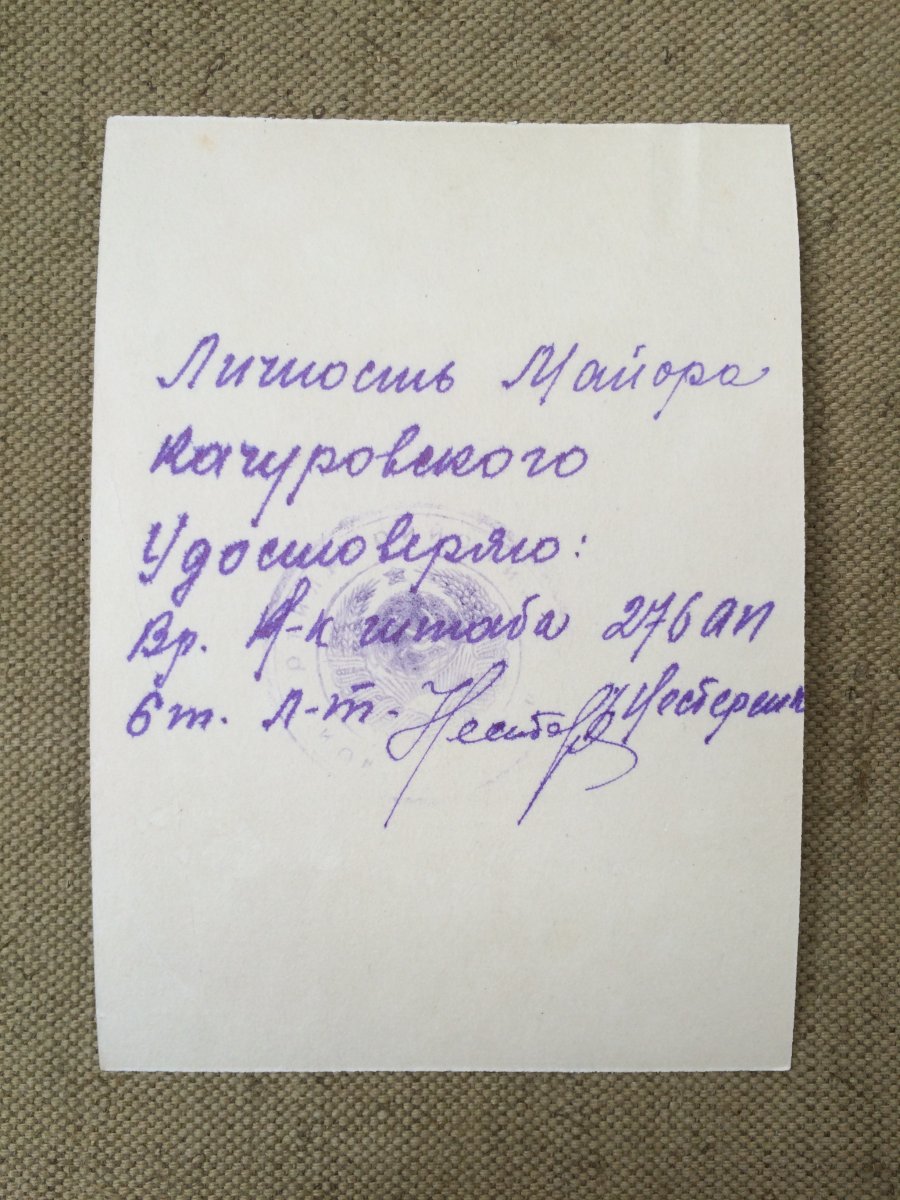 Личность Майора
Качуровского
Удостоверяю:
Вр. Н-к штаба 276 ап
Ст. л-т.